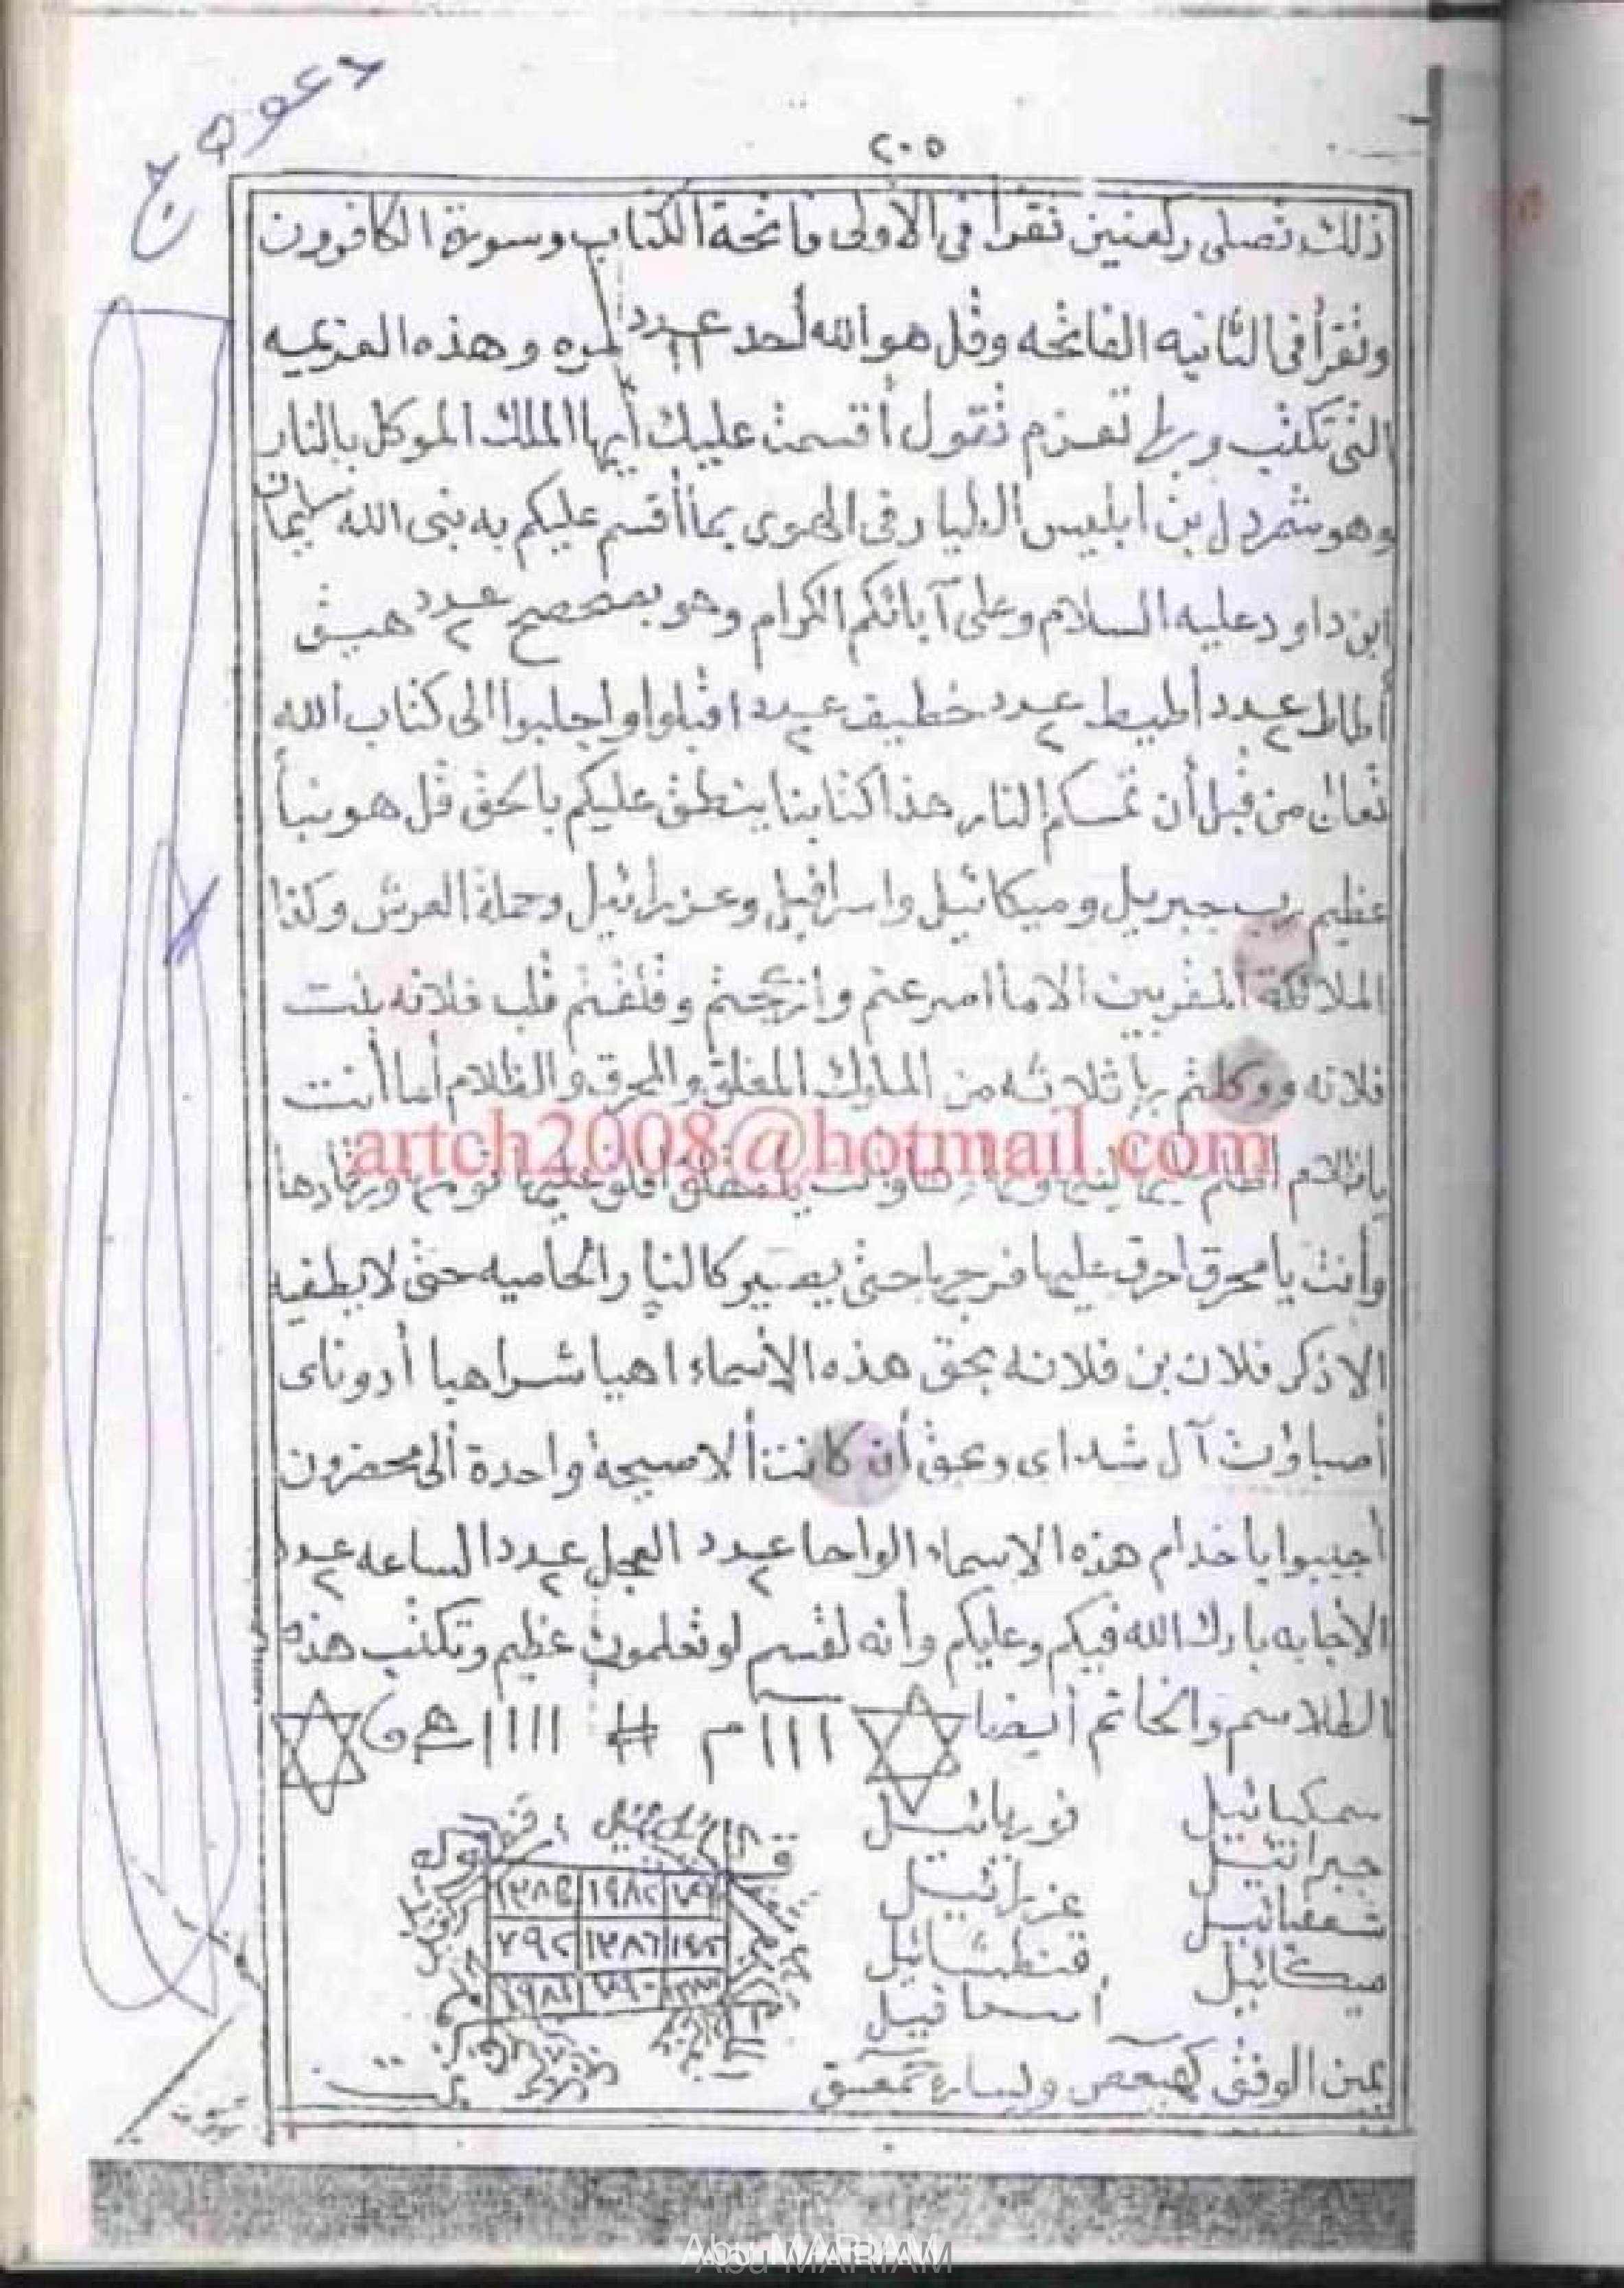 دعوة ج
٢٠٥
ذلك تصلى ركعتين تقرأ فى الأولى فاتحة الكتاب وسورة الكافرون
وتقرأ فى الثانيه الفاتحه وقل هو الله أحد عدد ١١ مره وهذه العزيمه
التى تكتب وبها تعزم تقول أقسمت عليك أيها الملك الموكل بالنار
وهو شمردل بن ابليس الطيار فى الهوى بما أقسم عليكم به نبى الله سليمان
ابن داود عليه السلام وعلى آبائكم الكرام وهو بصحصح عدد ٢ هيق
أطاط عدد ٢ أطيط عدد ٢ خطيف عدد ٢ اقبلوا واجلبوا الى كتاب الله
تعالى من قبل أن تمسكم النار هذا كتابنا ينطق عليكم بالحق قل هو نبأ
عظيم برب جبريل وميكائيل واسرافيل وعزرائيل وحملة العرش وكذا
الملائكة المقربين الا ما اسرعتم وانزعجتم وقلقتم قلب فلانه بنت
فلانه ووكلتم بها ثلاثه من الملوك المغلق والمحرق والظلام أما أنت
artch2008@hotmail.com
ياظلام اظلم عليها ليلها
وأنت يا محرق احرق عليها فرجها حتى يصير كالنار الحاميه حتى لا يطفيه
الا ذكر فلان بن فلانه بحق هذه الأسماء اهيا شراهيا أدوناى
أصباؤت آل شداى وبحق أن كانت ألا صيحة واحدة ألى محضرون
أجيبوا ياخدام هذه الاسماء الواحا عدد ٢ العجل عدد ٢ الساعه عدد ٢
الأجابه بارك الله فيكم وعليكم وأنه لقسم لو تعلمون عظيم وتكتب هذه
الطلاسم والخاتم أيضا ١١١ م # ١١١١
سمكيائيل نوريائيل
جبرائيل عزرائيل
ميكائيل
يمين الوفق كهيعص ويساره حمعسق
تمت
قوله
٧٩٢ ١٣٨٦
Abu MARIAM